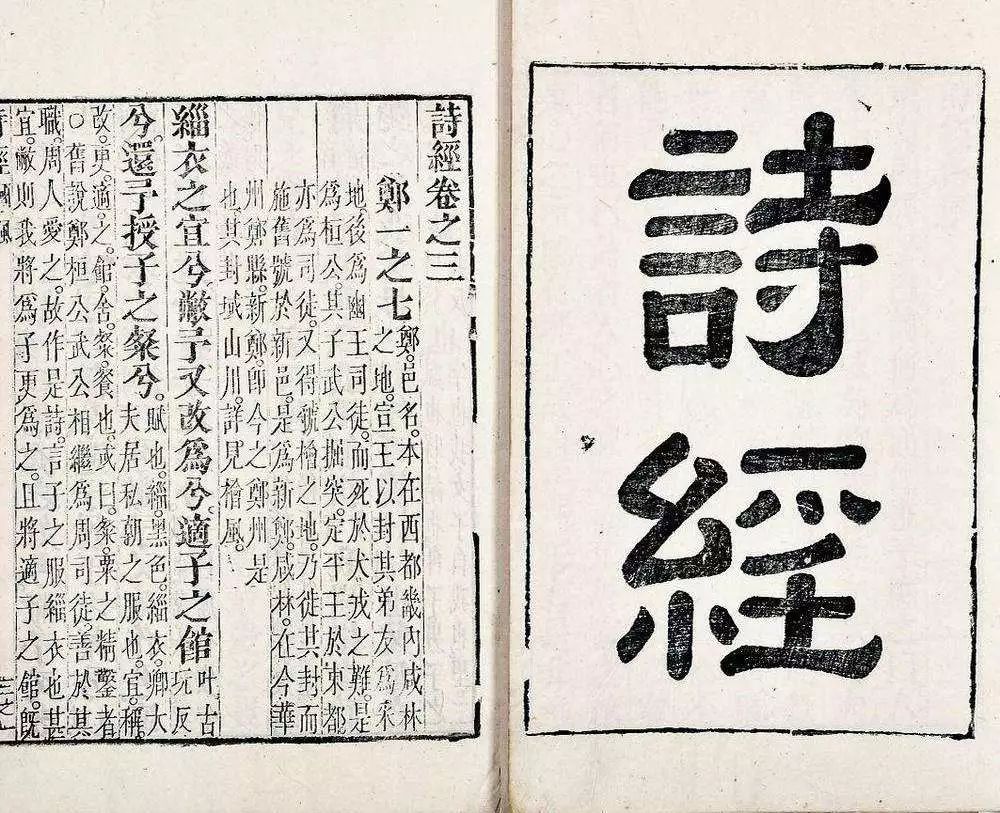 詩經
詩經卷之三
鄭一之七
鄭。邑名。本在西都畿內咸林
之地。宣王以封其弟友爲采
地後爲幽王司徒。而死於犬戎之難。是
爲桓公。其子武公掘突。定平王於東都
亦爲司徒。又得虢檜之地。乃徙其封而
施舊號於新邑。是爲新鄭。咸林。在今華
州鄭縣。新鄭。卽今之鄭州是
也其封域山川。詳見檜風。
緇衣之宜兮敝予又改爲兮。適子之館
叶古
玩反
兮。還予授子之粲兮。
賦也。緇。黑色。緇衣。卿大
夫居私朝之服也。宜。稱。
改。更。適。之。館。舍。粲。餐也。或曰。粲。粟之精鑿者
○舊說鄭桓公武公相繼爲周司徒善於其
職。周人愛之。故作是詩。言子之服緇衣也甚
宜。敝則我將爲子更爲之。且將適子之館。旣